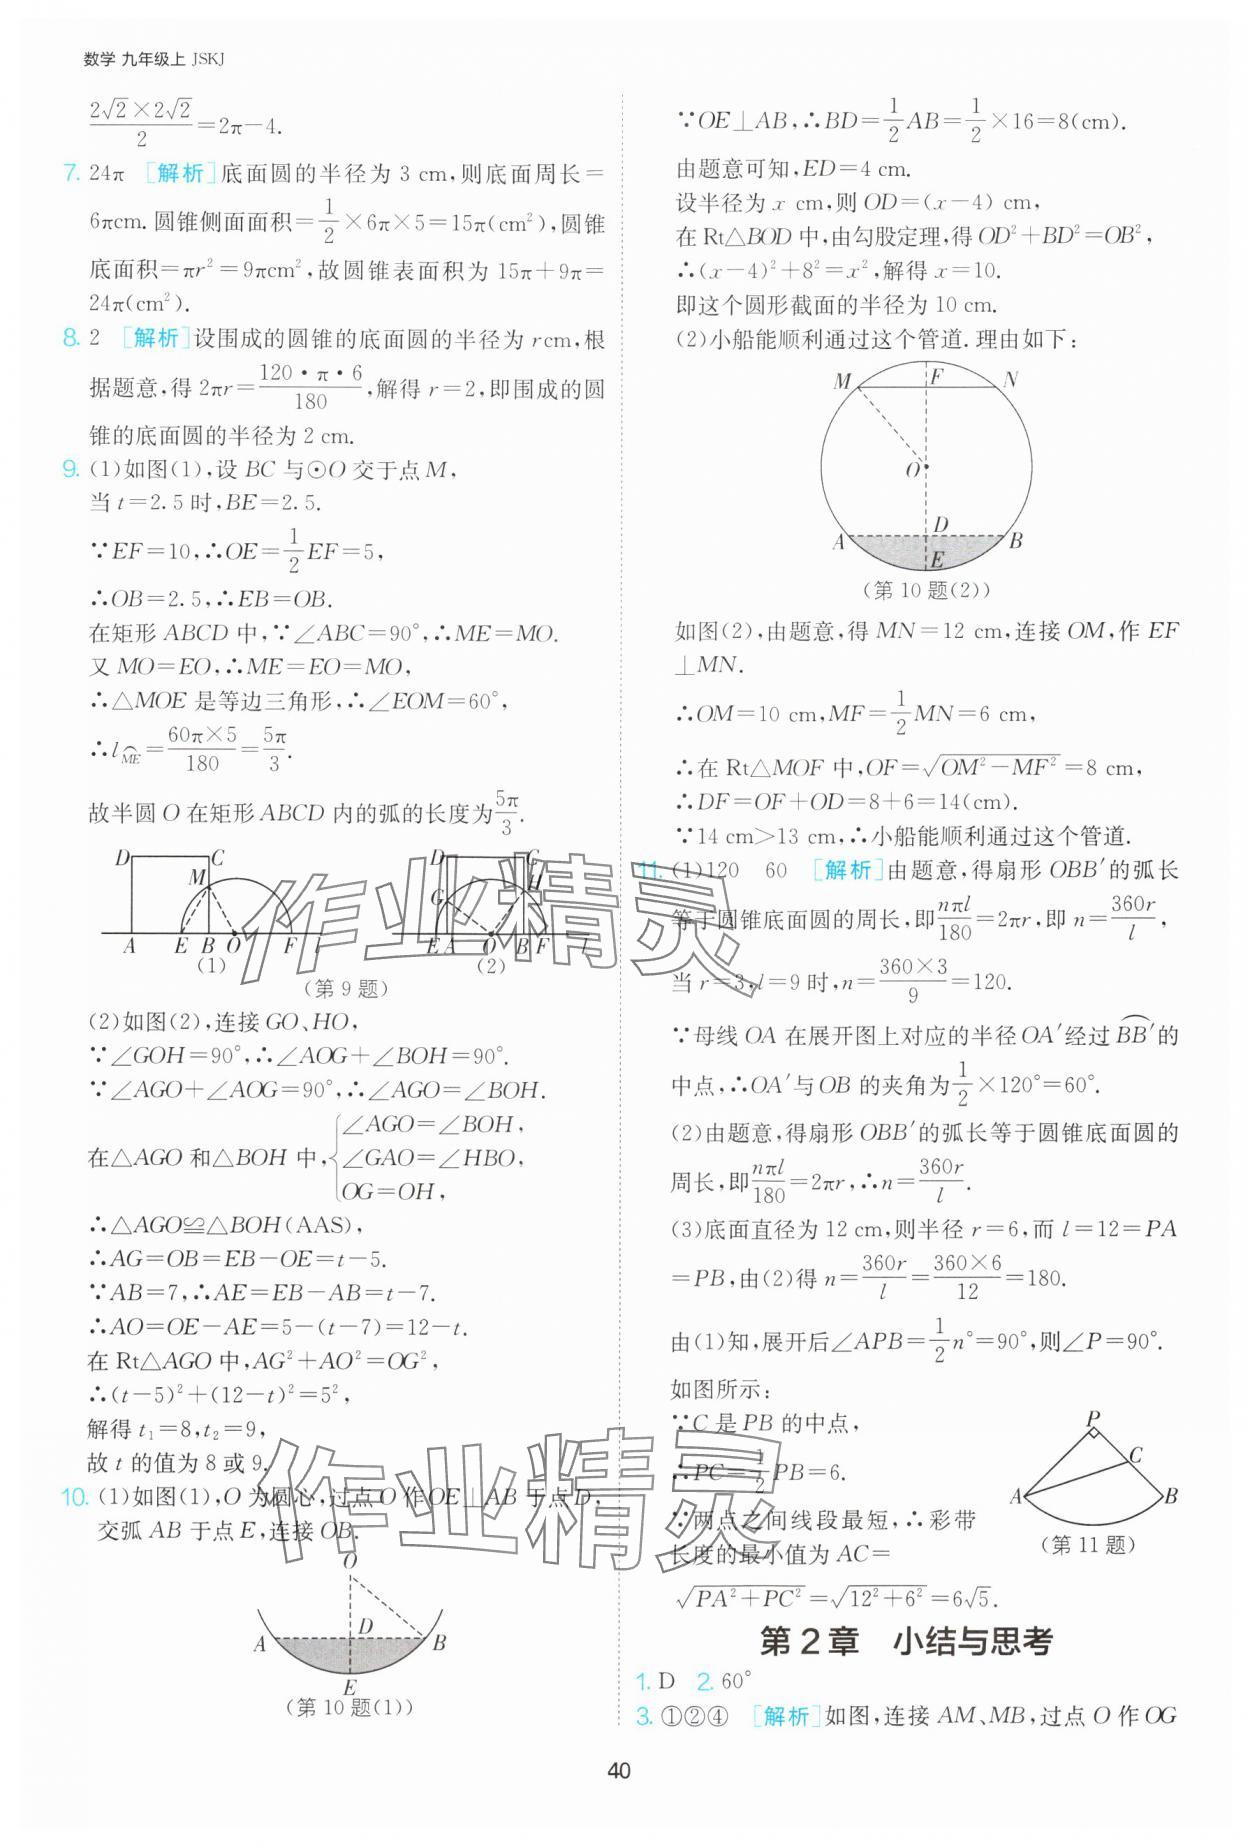 数学 九年级上 JSKJ
(2√2×2√2)/2=2π-4.
7. 24π [解析]底面圆的半径为 3 cm,则底面周长=
6πcm.圆锥侧面面积=1/2×6π×5=15π(cm²),圆锥
底面积=πr²=9πcm²,故圆锥表面积为 15π+9π=
24π(cm²).
8. 2 [解析]设围成的圆锥的底面圆的半径为 rcm,根
据题意,得 2πr=(120·π·6)/180,解得 r=2,即围成的圆
锥的底面圆的半径为 2 cm.
9. (1)如图(1),设 BC 与⊙O 交于点 M,
当 t=2.5 时,BE=2.5.
∵EF=10,∴OE=1/2EF=5,
∴OB=2.5,∴EB=OB.
在矩形 ABCD 中,∵∠ABC=90°,∴ME=MO.
又 MO=EO,∴ME=EO=MO,
∴△MOE 是等边三角形,∴∠EOM=60°,
∴l⌒ME=(60π×5)/180=5π/3.
故半圆 O 在矩形 ABCD 内的弧的长度为5π/3.
D C M A E B O F l
(1)
D C G H E A O B F l
(2)
(第 9 题)
(2)如图(2),连接 GO、HO,
∵∠GOH=90°,∴∠AOG+∠BOH=90°.
∵∠AGO+∠AOG=90°,∴∠AGO=∠BOH.
在△AGO 和△BOH 中,{∠AGO=∠BOH,
∠GAO=∠HBO,
OG=OH,
∴△AGO≌△BOH(AAS),
∴AG=OB=EB-OE=t-5.
∵AB=7,∴AE=EB-AB=t-7.
∴AO=OE-AE=5-(t-7)=12-t.
在 Rt△AGO 中,AG²+AO²=OG²,
∴(t-5)²+(12-t)²=5²,
解得 t₁=8,t₂=9,
故 t 的值为 8 或 9.
10. (1)如图(1),O 为圆心,过点 O 作 OE⊥AB 于点 D,
交弧 AB 于点 E,连接 OB.
O
A D B
E
(第 10 题(1))
∵OE⊥AB,∴BD=1/2AB=1/2×16=8(cm).
由题意可知,ED=4 cm.
设半径为 x cm,则 OD=(x-4) cm,
在 Rt△BOD 中,由勾股定理,得 OD²+BD²=OB²,
∴(x-4)²+8²=x²,解得 x=10.
即这个圆形截面的半径为 10 cm.
(2)小船能顺利通过这个管道.理由如下:
M F N
O
A D B
E
(第 10 题(2))
如图(2),由题意,得 MN=12 cm,连接 OM,作 EF
⊥MN.
∴OM=10 cm,MF=1/2MN=6 cm,
∴在 Rt△MOF 中,OF=√(OM²-MF²)=8 cm,
∴DF=OF+OD=8+6=14(cm).
∵14 cm>13 cm,∴小船能顺利通过这个管道.
11. (1)120 60 [解析]由题意,得扇形 OBB′的弧长
等于圆锥底面圆的周长,即nπl/180=2πr,即 n=360r/l,
当 r=3,l=9 时,n=(360×3)/9=120.
∵母线 OA 在展开图上对应的半径 OA′经过⌒BB′的
中点,∴OA′与 OB 的夹角为1/2×120°=60°.
(2)由题意,得扇形 OBB′的弧长等于圆锥底面圆的
周长,即nπl/180=2πr,∴n=360r/l.
(3)底面直径为 12 cm,则半径 r=6,而 l=12=PA
=PB,由(2)得 n=360r/l=(360×6)/12=180.
由(1)知,展开后∠APB=1/2n°=90°,则∠P=90°.
如图所示:
∵C 是 PB 的中点,
∴PC=1/2PB=6.
∵两点之间线段最短,∴彩带
长度的最小值为 AC=
√(PA²+PC²)=√(12²+6²)=6√5.
P
C
A B
(第 11 题)
第 2 章 小结与思考
1. D 2. 60°
3. ①②④ [解析]如图,连接 AM、MB,过点 O 作 OG
40
作业精灵
作业精灵